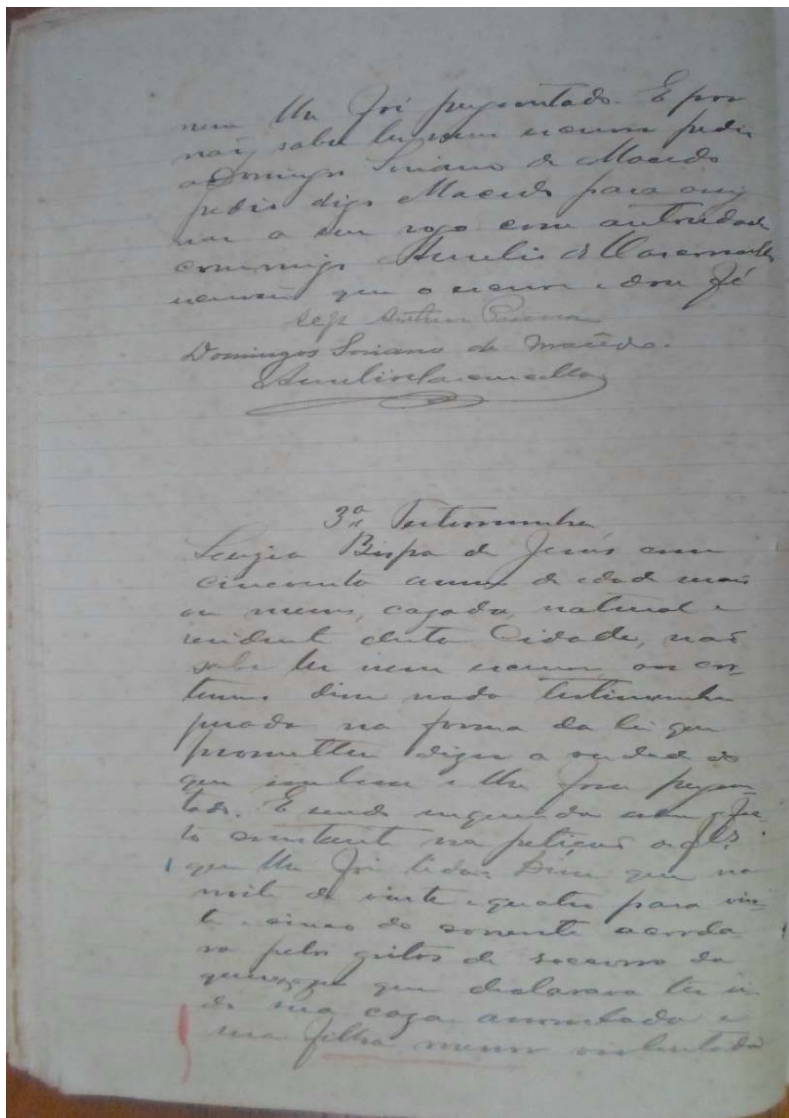 nem lhe foi preguntado. E por
não saber ler nem escrever pediu
a Domingos Soriano de Macedo
pedio digo Macedo para assig
nar a seu rogo com autoridade
commigo Aurelio de Vasconcellos
escrivão que o escrevi e dou fé
Domingos Soriano de Macêdo.
Aurelio Vasconcellos
3ª Testemunha
Bispa de Jesús com
cincoenta annos de edade mais
ou menos, cazada, natural e
residente desta Cidade, não
sabe ler nem escrever, aos cos-
tumes disse nada testimunha
jurada na forma da lei que
prometteu dizer a verdade do
que soubesse e lhe fosse pregun-
tado. E sendo inquerida com o fac-
to constante na petição a fls
que lhe foi lida: Disse que na
noite de vinte e quatro para vin-
te e cinco do corrente acorda-
ra pelos gritos de socorro da
queixosa que declarava ter si-
do sua caza arrombada e
sua filha menor violentada